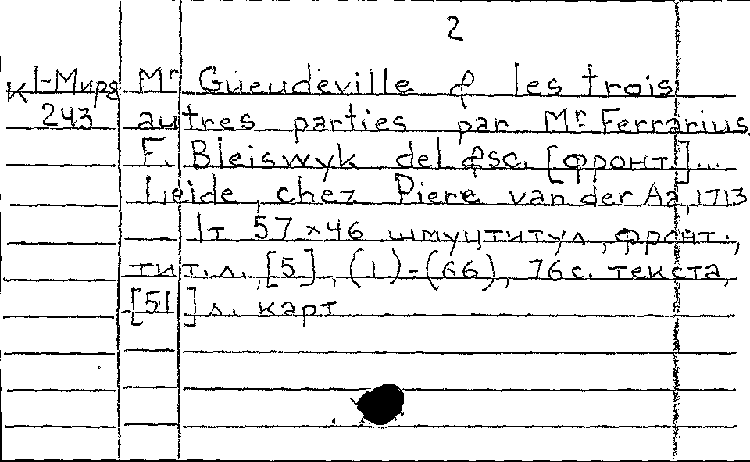 2
К 1-Мира Mr Gueudeville & les trois
243 autres parties par Mr Ferrarius
F. Bleiswyk del &sc. [фронт.]...
Leide, chez Piere van der Aa, 1713
1т 57×46 шмуцтитул, фронт.,
тит.л., [5], (1)-(66), 76 с. текста,
[51] л. карт